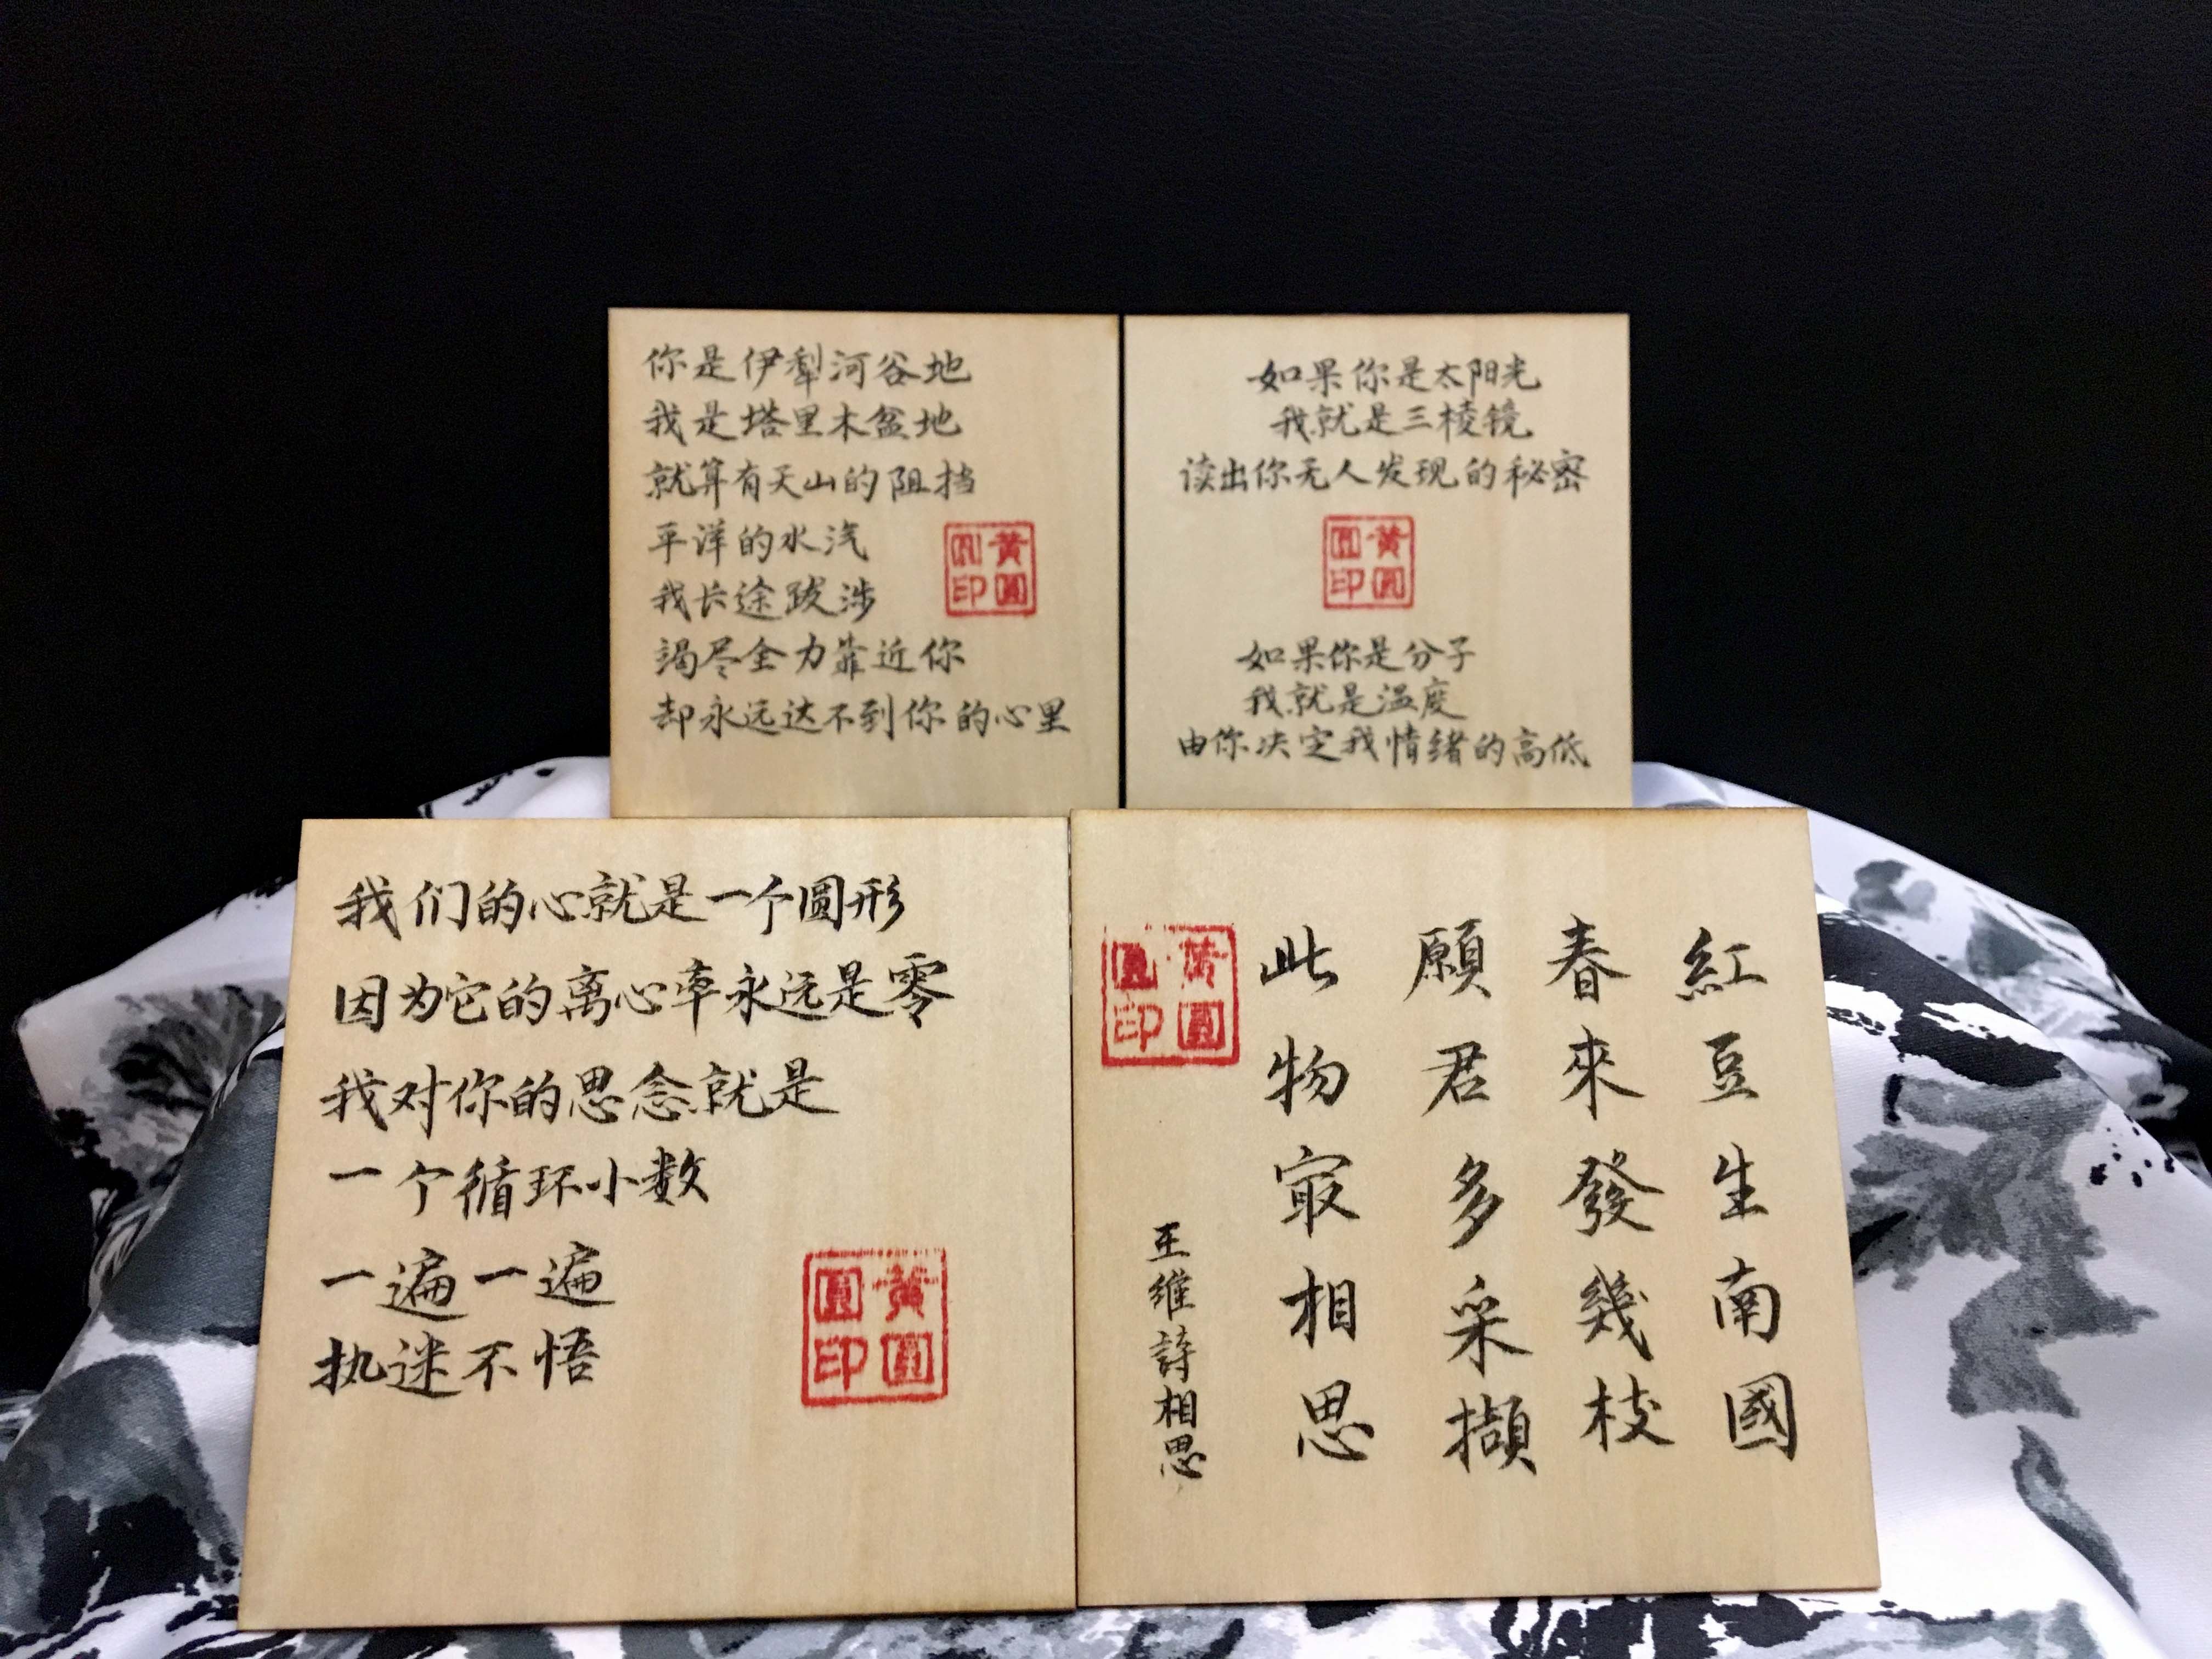 你是伊犁河谷地
我是塔里木盆地
就算有天山的阻挡
平洋的水汽
我长途跋涉
竭尽全力靠近你
却永远达不到你的心里
黄圓
圓印
如果你是太阳光
我就是三棱镜
读出你无人发现的秘密
黄圓
圓印
如果你是分子
我就是温度
由你决定我情绪的高低
我们的心就是一个圆形
因为它的离心率永远是零
我对你的思念就是
一个循环小数
一遍一遍
执迷不悟
黄圓
圓印
紅豆生南國
春來發幾枝
願君多采擷
此物㝡相思
王維詩相思
黄圓
圓印